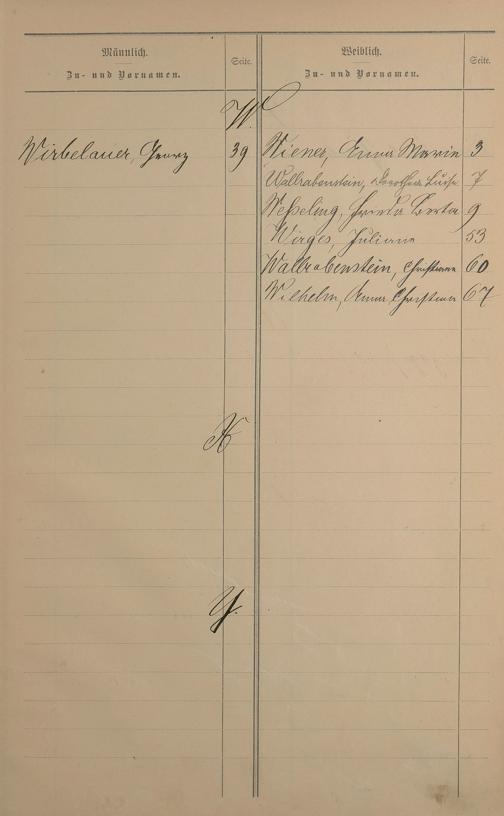 Männlich.
Zu- und Vornamen.
Seite.
Weiblich.
Zu- und Vornamen.
Seite.
W.
Wirbelauer, Georg 39
Wiener, Anna Marie 3
Wallrabenstein, Dorothea Luise 7
Weßeling, Frieda Berta 9
Wirges, Juliane 53
Wallrabenstein, Christiane 60
Wilhelm, Anna Christian 67
X
Y.